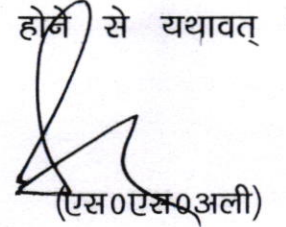 होने से यथावत्
(एस0एस0अली)